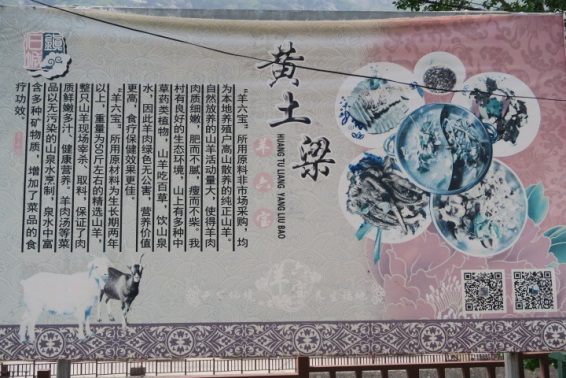 黄土梁
羊六宝
HUANG TU LIANG YANG LIU BAO
“羊六宝”所用原料非市场采购，均
为本地养殖户高山散养的纯正山羊。
自然放养的山羊活动量大，使得羊肉
肉质细嫩，肥而不腻，瘦而不柴。我
村有良好的生态环境，山上有多种中
草药类植物，山羊吃百草，饮山泉
水，因此羊肉绿色无公害，营养价值
更高，食疗保健效果更佳。
“羊六宝”所用原材料为生长期两年
以上，重量为50斤左右的精选山羊，
整只山羊现场宰杀、取料，保证了肉
质鲜嫩多汁，健康营养，羊肉汤等菜
品以无污染的山泉水烹制，泉水中富
含多种矿物质，增加了菜品的食
疗功效。